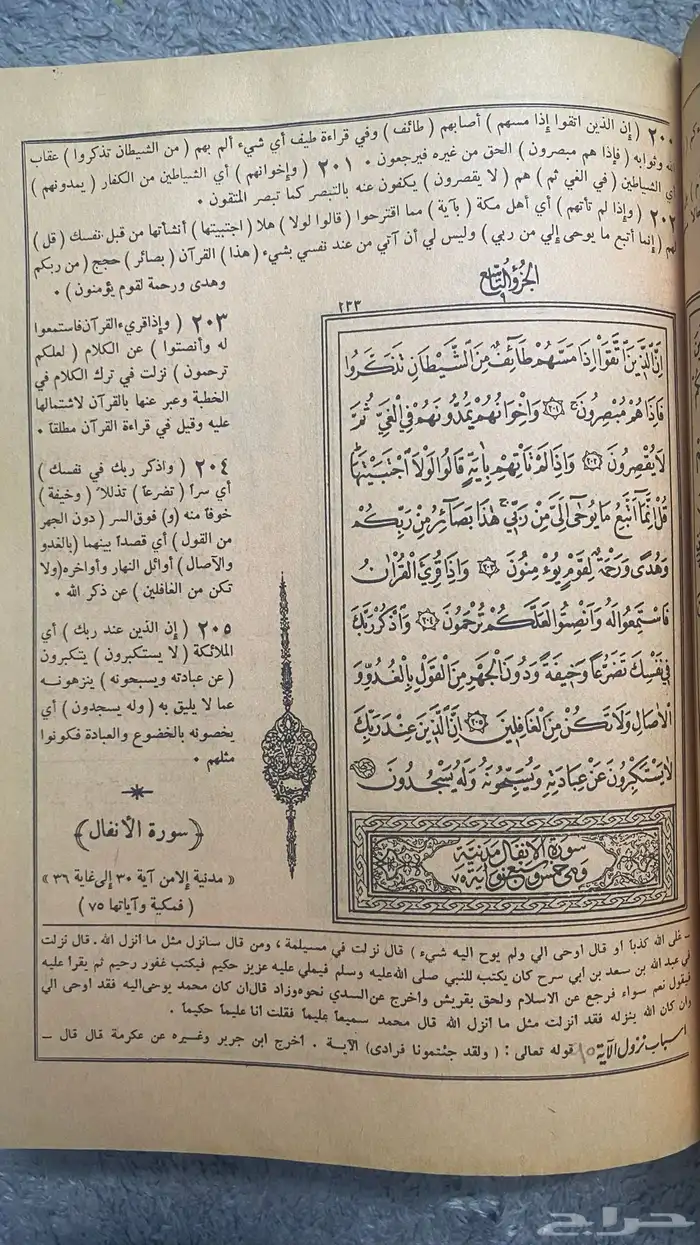 ٢٠٠ ( إن الذين اتقوا إذا مسهم ) أصابهم ( طائف ) وفي قراءة طيف أي شيء ألم بهم ( من الشيطان تذكروا ) عقاب
وثوابه ( فإذا هم مبصرون ) الحق من غيره فيرجعون ٠ ٢٠١ ( وإخوانهم ) أي الشياطين من الكفار ( يمدونهم )
أي الشياطين ( في الغي ثم ) هم ( لا يقصرون ) يكفون عنه بالتبصر كما تبصر المتقون ٠
٢٠٢ ( وإذا لم تأتهم ) أي أهل مكة ( بآية ) مما اقترحوا ( قالوا لولا ) هلا ( اجتبيتها ) أنشأتها من قبل نفسك ( قل )
لهم ( إنما أتبع ما يوحى إلي من ربي ) وليس لي أن آتي من عند نفسي بشيء ( هذا ) القرآن ( بصائر ) حجج ( من ربكم
وهدى ورحمة لقوم يؤمنون ) ٠
الجزؤ التاسع
٢٣٣
اِنَّ الَّذِينَ اتَّقَوْا اِذَا مَسَّهُمْ طَائِفٌ مِنَ الشَّيْطَانِ تَذَكَّرُوا
فَاِذَا هُمْ مُبْصِرُونَ ٢٠١ وَاِخْوَانُهُمْ يَمُدُّونَهُمْ فِي الْغَيِّ ثُمَّ
لَا يُقْصِرُونَ ٢٠٢ وَاِذَا لَمْ تَاْتِهِمْ بِاٰيَةٍ قَالُوا لَوْلَا اجْتَبَيْتَهَا
قُلْ اِنَّمَا اَتَّبِعُ مَا يُوحٰى اِلَيَّ مِنْ رَبِّي هٰذَا بَصَائِرُ مِنْ رَبِّكُمْ
وَهُدًى وَرَحْمَةٌ لِقَوْمٍ يُؤْمِنُونَ ٢٠٣ وَاِذَا قُرِئَ الْقُرْاٰنُ
فَاسْتَمِعُوا لَهُ وَاَنْصِتُوا لَعَلَّكُمْ تُرْحَمُونَ ٢٠٤ وَاذْكُرْ رَبَّكَ
فِي نَفْسِكَ تَضَرُّعًا وَخِيفَةً وَدُونَ الْجَهْرِ مِنَ الْقَوْلِ بِالْغُدُوِّ وَ
الْاٰصَالِ وَلَا تَكُنْ مِنَ الْغَافِلِينَ ٢٠٥ اِنَّ الَّذِينَ عِنْدَ رَبِّكَ
لَا يَسْتَكْبِرُونَ عَنْ عِبَادَتِهِ وَيُسَبِّحُونَهُ وَلَهُ يَسْجُدُونَ
سورة الانفال مدنية
وهي خمس وسبعون اية ٧٥
٢٠٣ ( وإذا قريء القرآن فاستمعوا
له وأنصتوا ) عن الكلام ( لعلكم
ترحمون ) نزلت في ترك الكلام في
الخطبة وعبر عنها بالقرآن لاشتمالها
عليه وقيل في قراءة القرآن مطلقاً ٠
٢٠٤ ( واذكر ربك في نفسك )
أي سراً ( تضرعاً ) تذللاً ( وخيفة )
خوفاً منه (و) فوق السر ( دون الجهر
من القول ) أي قصداً بينهما (بالغدو
والآصال ) أوائل النهار وأواخره (ولا
تكن من الغافلين ) عن ذكر الله ٠
٢٠٥ ( إن الذين عند ربك ) أي
الملائكة ( لا يستكبرون ) يتكبرون
( عن عبادته ويسبحونه ) ينزهونه
عما لا يليق به ( وله يسجدون ) أي
يخصونه بالخضوع والعبادة فكونوا
مثلهم ٠
( سورة الأنفال )
« مدنية إلا من آية ٣٠ إلى غاية ٣٦ »
( فمكية وآياتها ٧٥ )
ـ على الله كذباً او قال اوحى الي ولم يوح اليه شيء ) قال نزلت في مسيلمة ، ومن قال سانزل مثل ما انزل الله . قال نزلت
في عبد الله بن سعد بن ابي سرح كان يكتب للنبي صلى الله عليه وسلم فيملي عليه عزيز حكيم فيكتب غفور رحيم ثم يقرأ عليه
فيقول نعم سواء فرجع عن الاسلام ولحق بقريش واخرج عن السدي نحوه وزاد قال ان كان محمد يوحى اليه فقد اوحى الي
وان كان الله ينزله فقد انزلت مثل ما انزل الله قال محمد سميعاً عليماً فقلت انا عليماً حكيماً .
اسباب نزول الآية قوله تعالى : ( ولقد جئتمونا فرادى) الآية . اخرج ابن جرير وغيره عن عكرمة قال قال ـ
حراج